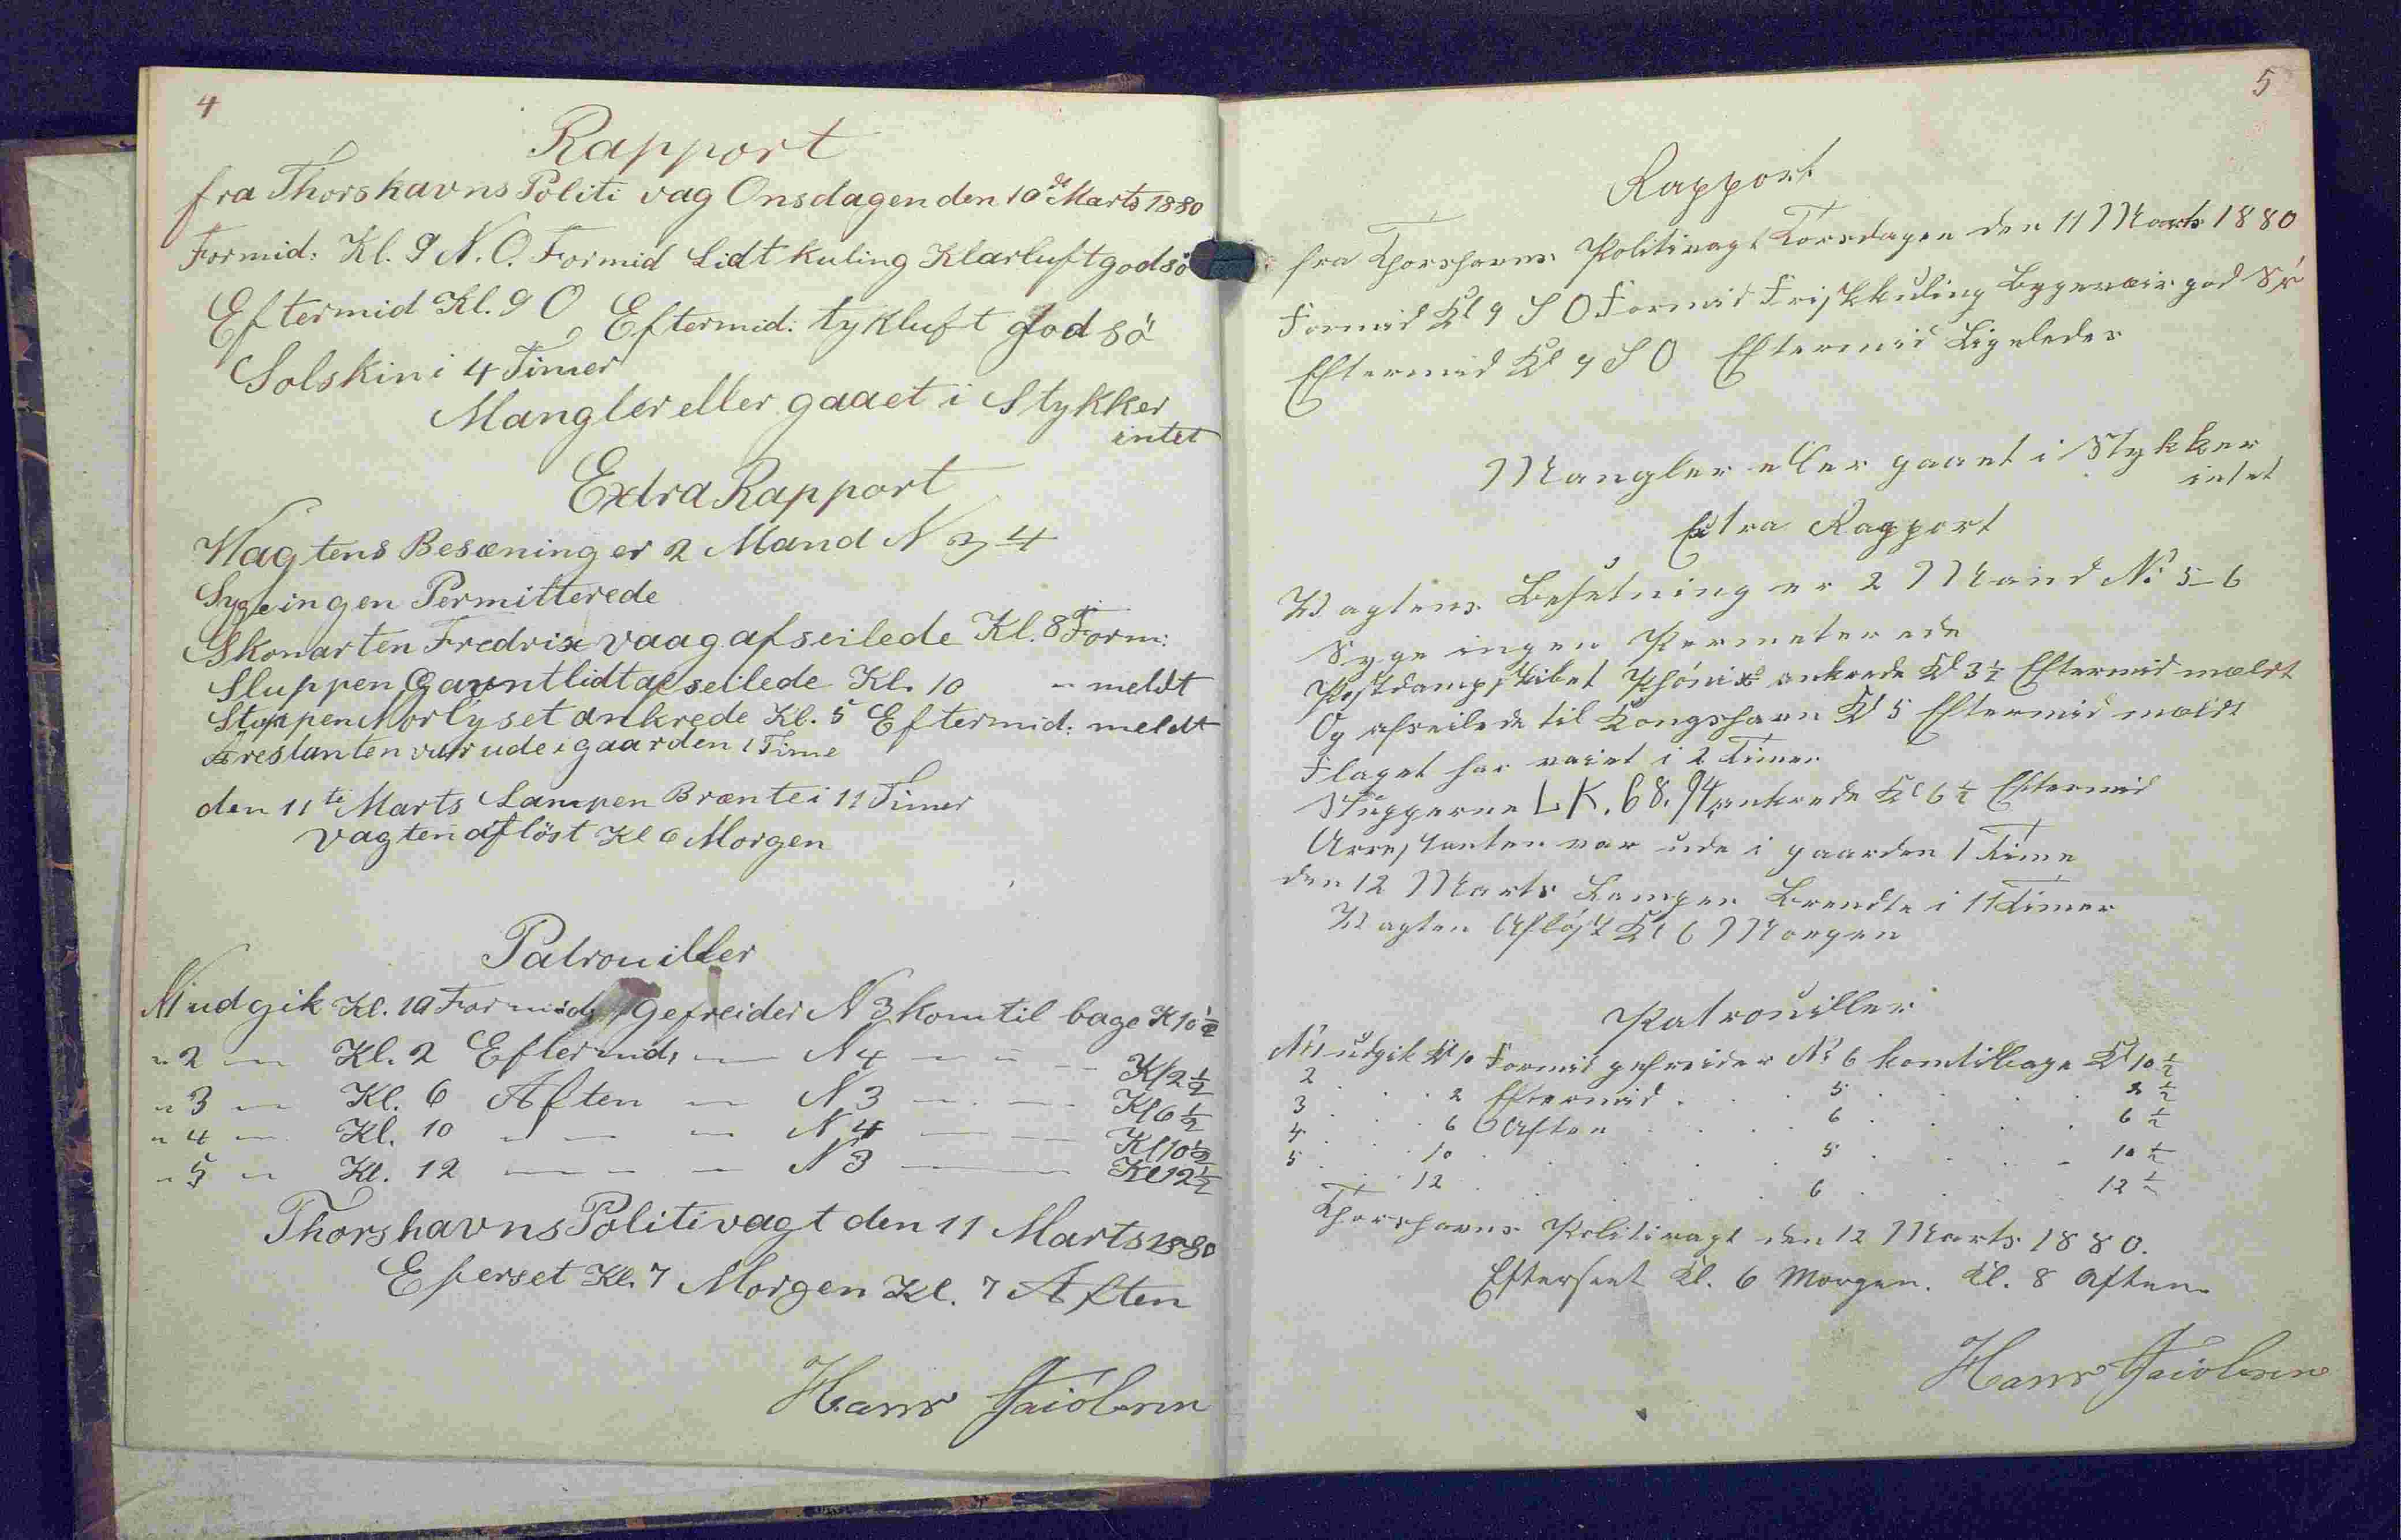 4
Rapport
fra Thorshavns Politi vag Onsdagen den 10de Marts 1880
Formid: Kl. 9 N. O. Formid Lidt kuling Klarluft godsö
Eftermid Kl. 9 O, Eftermid. tykluft god sö
Solskin i 4 Timer
Mangler eller gaaet i Stykker
intet
Extra Rapport
Wagtens Besæning er 2 Mand N 3 4
Syge ingen Permitterede
Skonarten Fredrix vaag afseilede Kl. 8 Form:
Sluppen afseilede Kl. 10 – meldt
Sluppen Norlyset ankrede Kl. 5 Eftermid: meldt
Arestanten var ude i gaarden 1 Time
den 11te Marts Lampen Brænte i 11 Timer
vagten aflöst Kl 6 Morgen
Patrouiller
N 1 udgik Kl. 10 Formid, gefreider N 3 kom til bage K 10 ½
" 2 — Kl. 2 Eftermid, — N 4 — — Kl 2 ½
" 3 — Kl. 6 Aften — N 3 — — Kl 6 ½
" 4 — Kl. 10 — — — N 4 — — Kl 10 ½
" 5 — Kl. 12 — — — N 3 — — Kl 12 ½
Thorshavns Politivagt den 11 Marts 1880
Eferset Kl. 7 Morgen Kl. 7 Aften
Hans Jaicobsen
5
Rapport
fra Thorshavns Politivagt Torsdagen den 11 Marts 1880
Formid Kl 9 S O Formid Friskkuling Bygeveir god Sö
Eftermid Kl 9 S O Eftermid Ligeledes
Mangler eller gaaet i Stykker
intet
Extra Rapport
Wagtens Besetning er 2 Mand No 5–6
Syge ingen Permeterede
Postdampskibet Phönix ankrede Kl 3½ Eftermid meldt
Og afseilede til Kongshavn Kl 5 Eftermid meldt
Flaget har vaiet i 2 Timer
Slupperne L K. 68. 94, ankrede Kl 6½ Eftermid
Arrestanten var ude i gaarden 1 Time
den 12 Marts Lampen Brendte i 11 Timer
Wagten Aflöst Kl 6 Morgen
Patrouiller
No 1 udgik Kl 10 Formid gefreider No 6 kom tilbage Kl 10 ½
2 . . . 2 Eftermid . . . 5 . . . . 2 ½
3 . . . 6 Aften . . . 6 . . . . 6 ½
4 . . . 10 . . . . 5 . . . . 10 ½
5 . . . 12 . . . . 6 . . . . 12 ½
Thorshavns Politivagt den 12 Marts 1880.
Efterseet Kl. 6 Morgen. Kl. 8 Aften.
Hans Jaicobsen